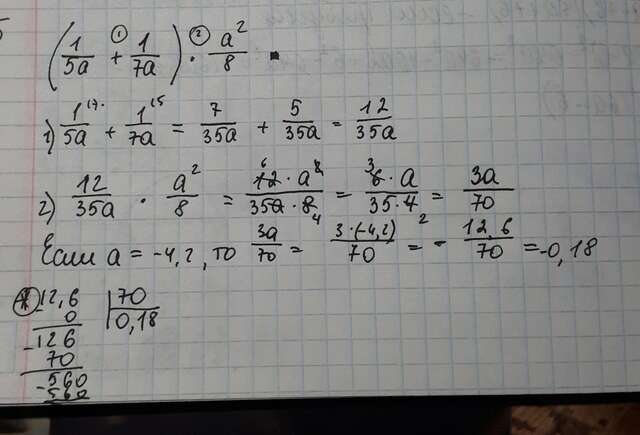 (1/5a + 1/7a) · a²/8
1) 1/5a + 1/7a = 7/35a + 5/35a = 12/35a
2) 12/35a · a²/8 = 12 · a²/35a · 8 = 6 · a/35 · 4 = 3a/70
Если a = -4,2, то 3a/70 = 3 · (-4,2)/70 = - 12,6/70 = -0,18
12,6 | 70
0 | 0,18
-126
70
-560
560